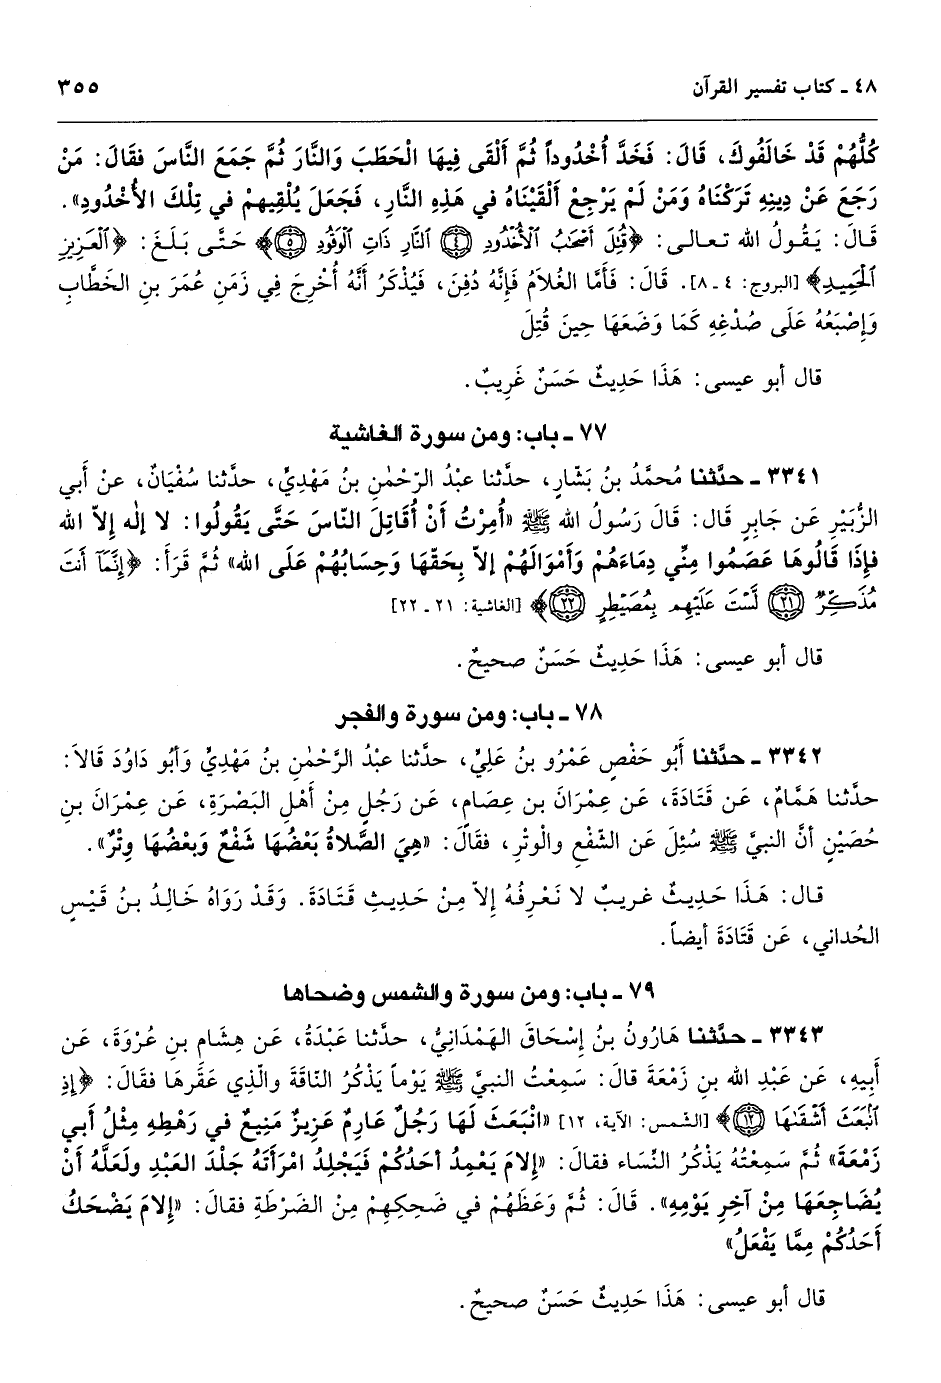 ٤٨ ـ كتاب تفسير القرآن
٣٥٥
كُلُّهُمْ قَدْ خَالَفُوكَ، قَالَ: فَخَدَّ أُخْدُوداً ثُمَّ أَلْقَى فِيهَا الْحَطَبَ وَالنَّارَ ثُمَّ جَمَعَ النَّاسَ فقَالَ: مَنْ
رَجَعَ عَنْ دِينِهِ تَرَكْنَاهُ وَمَنْ لَمْ يَرْجِعْ أَلْقَيْنَاهُ في هَذِهِ النَّارِ، فَجَعَلَ يُلْقِيهِمْ في تِلْكَ الأُخْدُودِ».
قَالَ: يَقُولُ الله تعالى: ﴿قُتِلَ أَصْحَٰبُ ٱلْأُخْدُودِ ﴿٤﴾ ٱلنَّارِ ذَاتِ ٱلْوَقُودِ ﴿٥﴾﴾ حَتَّى بَلَغَ: ﴿ٱلْعَزِيزِ
ٱلْحَمِيدِ﴾ [البروج: ٤ ـ ٨]. قَالَ: فَأَمَّا الغُلاَمُ فَإِنَّهُ دُفِنَ، فَيُذْكَرُ أَنَّهُ أُخْرِجَ فِي زَمَنِ عُمَرَ بنِ الخَطَّابِ
وَإِصْبَعُهُ عَلَى صُدْغِهِ كَمَا وَضَعَهَا حِينَ قُتِلَ
قال أبو عيسى: هَذَا حَدِيثٌ حَسَنٌ غَرِيبٌ.
٧٧ ـ باب: ومن سورة الغاشية
٣٣٤١ ـ حدَّثنا مُحمَّدُ بنُ بَشَّارٍ، حدَّثنا عبْدُ الرّحْمٰنِ بنُ مَهْدِيٍّ، حدَّثنا سُفْيَانُ، عنْ أَبي
الزُّبَيْرِ عَن جَابِرٍ قَال: قَالَ رَسُولُ الله ﷺ «أُمِرْتُ أَنْ أُقَاتِلَ النّاسَ حَتَّى يَقُولُوا: لا إلٰه إلاّ الله
فإِذَا قَالُوهَا عَصَمُوا مِنِّي دِمَاءَهُمْ وَأَمْوَالَهُمْ إلاّ بِحَقّهَا وَحِسَابُهُمْ عَلَى الله» ثُمَّ قَرَأَ: ﴿إِنَّمَآ أَنتَ
مُذَكِّرٌ ﴿٢١﴾ لَّسْتَ عَلَيْهِم بِمُصَيْطِرٍ ﴿٢٢﴾﴾ [الغاشية: ٢١ ـ ٢٢]
قال أبو عيسى: هَذَا حَدِيثٌ حَسَنٌ صحيحٌ.
٧٨ ـ باب: ومن سورة والفجر
٣٣٤٢ ـ حدَّثنا أَبُو حَفْصٍ عَمْرُو بنُ عَلِيٍّ، حدَّثنا عبْدُ الرَّحْمٰنِ بنُ مَهْدِيٍّ وَأبُو دَاوُدَ قَالاَ:
حدَّثنا هَمَّامٌ، عَن قَتَادَةَ، عَن عِمْرَانَ بن عِصَامٍ، عَن رَجُلٍ مِنْ أَهْلِ البَصْرَةِ، عَن عِمْرَانَ بنِ
حُصَيْنٍ أنَّ النبيَّ ﷺ سُئِلَ عَن الشّفْعِ والْوتْرِ، فقَالَ: «هِيَ الصَّلاةُ بَعْضُهَا شَفْعٌ وَبَعْضُهَا وِتْرٌ».
قال: هَذَا حَدِيثٌ غريبٌ لا نَعْرِفُهُ إلاّ مِنْ حَدِيثِ قَتَادَةَ. وَقَدْ رَوَاهُ خَالِدُ بنُ قَيْسٍ
الحُداني، عَن قَتَادَةَ أيضاً.
٧٩ ـ باب: ومن سورة والشمس وضحاها
٣٣٤٣ ـ حدَّثنا هَارُونُ بنُ إسْحَاقَ الهَمْدَانِيُّ، حدَّثنا عَبْدَةُ، عَن هِشَامِ بنِ عُرْوَةَ، عَن
أَبِيهِ، عَن عَبْدِ الله بنِ زَمْعَةَ قالَ: سَمِعْتُ النبيَّ ﷺ يَوْماً يَذْكُرُ النَاقَةَ والّذِي عَقَرَهَا فقَالَ: ﴿إِذِ
ٱنۢبَعَثَ أَشْقَىٰهَا ﴿١٢﴾﴾ [الشمس: الآية، ١٢] «انْبَعَثَ لَهَا رَجُلٌ عارِمٌ عَزِيزٌ مَنِيعٌ في رَهْطِهِ مِثْلُ أبي
زَمْعَةَ» ثُمَّ سَمِعْتُهُ يَذْكُرُ النِّسَاء فقالَ: «إلامَ يَعْمِدُ أحَدُكُمْ فَيَجْلِدُ امْرَأتَهُ جَلْدَ العَبْدِ ولَعَلَّهُ أنْ
يُضَاجِعَهَا مِنْ آخِرِ يَوْمِهِ». قَالَ: ثُمَّ وَعَظَهُمْ في ضَحِكِهِمْ مِنْ الضَرْطَةِ فقالَ: «إلامَ يَضْحَكُ
أَحَدُكُمْ مِمَّا يَفْعَلُ»
قال أبو عيسى: هَذَا حَدِيثٌ حَسَنٌ صحيحٌ.